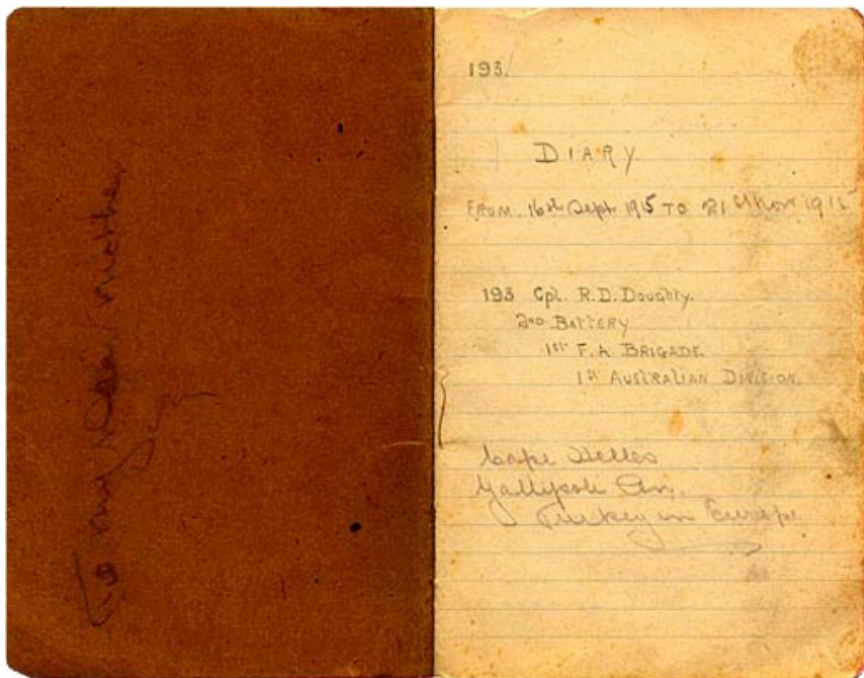 To my Dear Mother
193.
DIARY.
FROM 16th Sept 1915 TO 21st Nov 1915
193 Cpl. R.D. Doughty.
2ND BATTERY
1st F.A. BRIGADE
1st AUSTRALIAN DIVISION.
Cape Helles
Gallipoli Pen.
Turkey in Europe